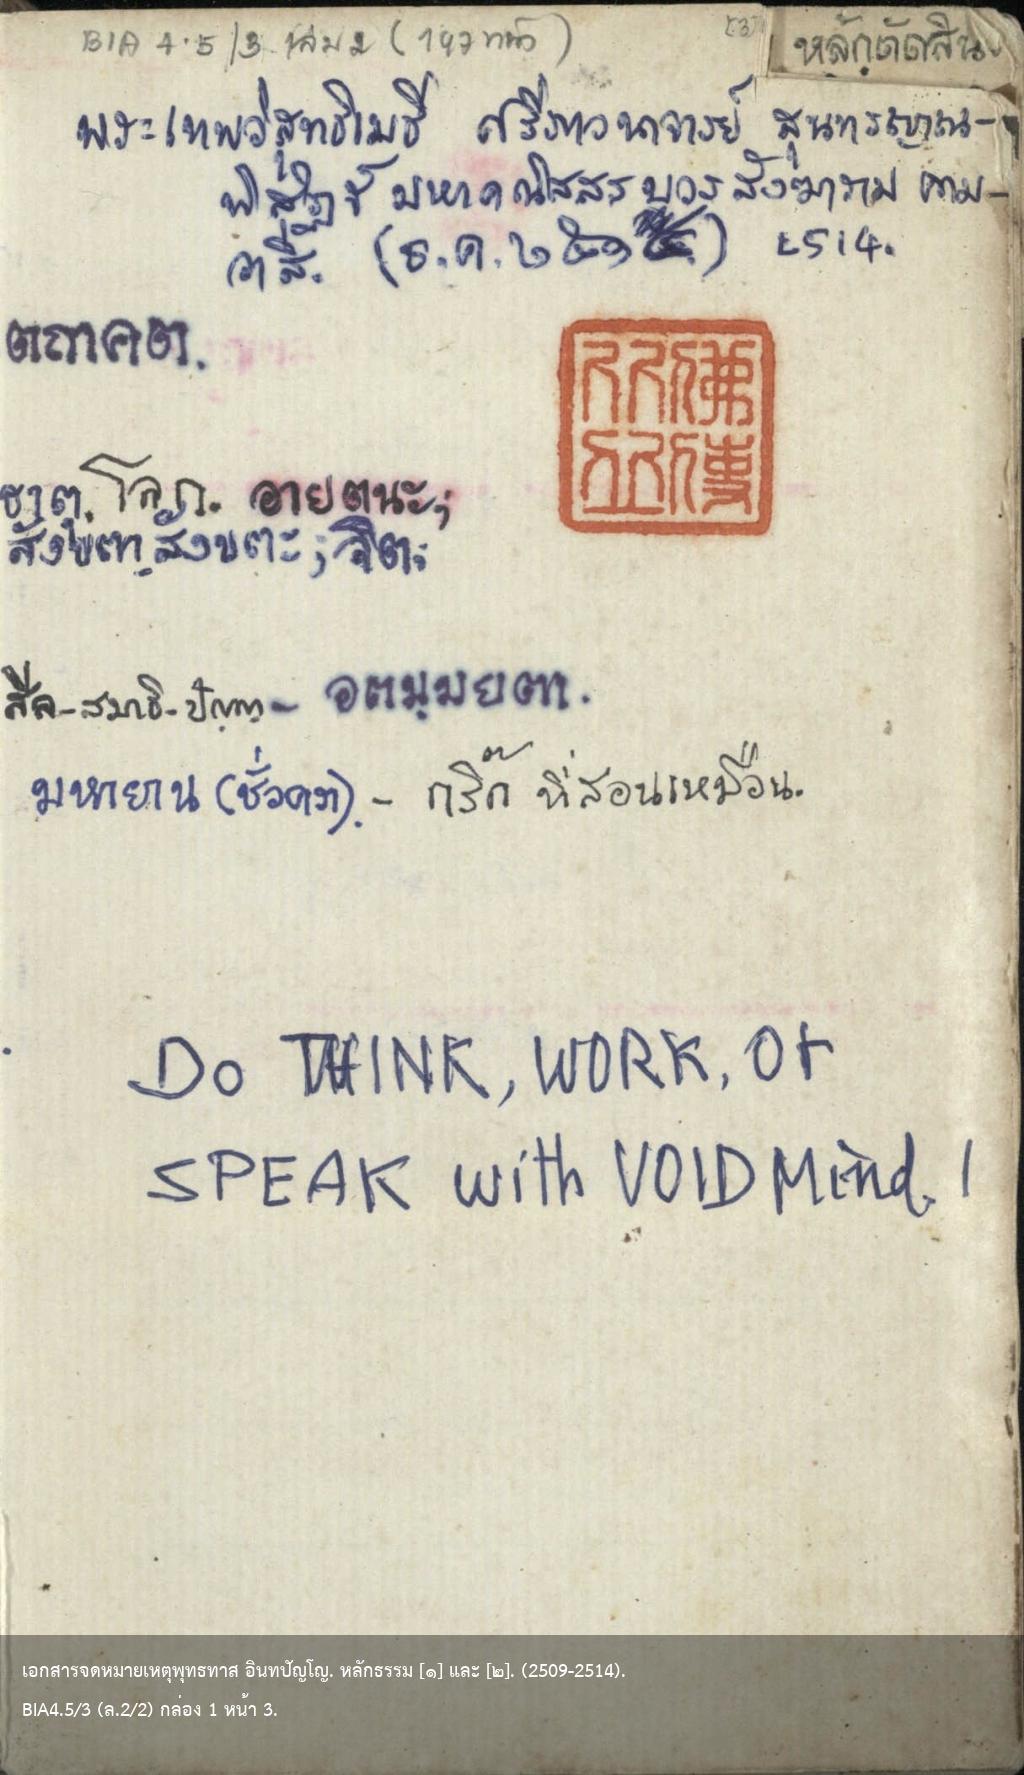 BIA 4.5/3 เล่ม 2 (147 หน้า)
[3]
หลักตัดสิน
พระเทพวิสุทธิเมธี ศรีภาวนาจารย์ สุนทรญาณ-
พิสิฏฐ์ มหาคณิสสร บวรสังฆาราม คาม-
วาสี. (ธ.ค. ๒๕๑๔) 2514.
ตถาคต.
ธาตุ, โลก. อายตนะ;
สังขตา, สังขตะ; จิต;
ศีล-สมาธิ-ปัญญา- อตมฺมยตา.
มหายาน (ชั่วคราว). - กริ๊ก ที่สอนเหมือน.
Do THINK, WORK, Or
SPEAK with VOID Mind. !
เอกสารจดหมายเหตุพุทธทาส อินทปัญโญ. หลักธรรม [๑] และ [๒]. (2509-2514).
BIA4.5/3 (ล.2/2) กล่อง 1 หน้า 3.